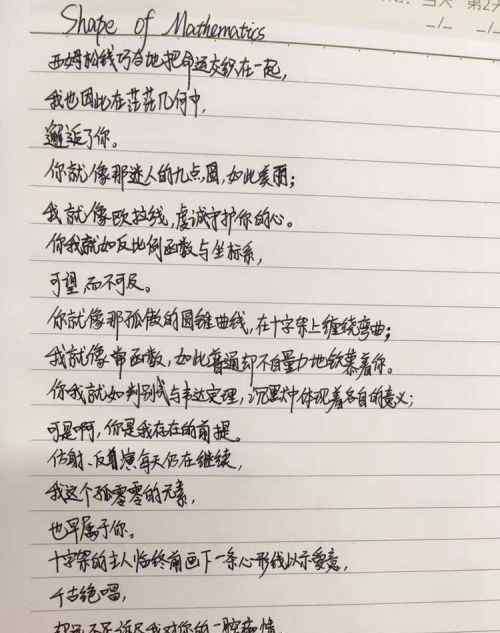 Shape of Mathematics
西姆松线巧合地把命运交织在一起,
我也因此在茫茫几何中,
邂逅了你。
你就像那迷人的九点圆,如此美丽;
我就像欧拉线,虔诚守护你的心。
你我就如反比例函数与坐标系,
可望而不可及。
你就像那孤傲的圆锥曲线,在十字架上缠绕弯曲;
我就像常函数,如此普通却不自量力地钦慕着你。
你我就如判别式与韦达定理,沉默中体现着各自的意义;
可是啊,你是我存在的前提。
仿射、反演每天仍在继续,
我这个孤零零的元素,
也早属于你。
十字架的主人临终前画下一条心形线以示爱意,
千古绝唱,
却远不足诉尽我对你的一腔痴情